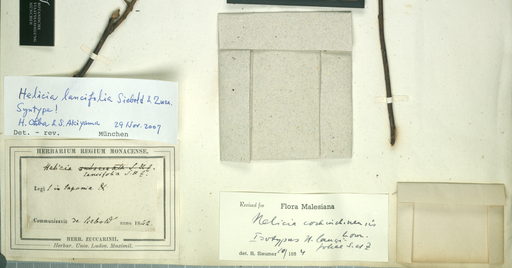 Helicia lancifolia Siebold & Zucc.
Syntype!
H. Ohba & S. Akiyama 29 Nov. 2007
Det. - rev. München
HERBARIUM REGIUM MONACENSE.
Helicia
lancifolia S. & Z.
Legit in Japonia
Communicavit de Siebold anno 1842.
HERB. ZUCCARINII.
Herbar. Univ. Ludov. Maximil.
Revised for Flora Malesiana
Helicia cochinchinensis
Lour.
Isotypus H. lancifoliae S. et Z
det. H. Sleumer